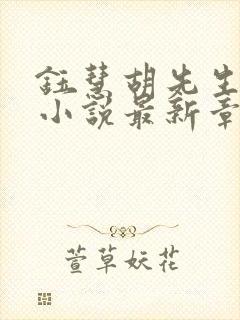 钰慧胡先生
小说最新章
萱草妖花